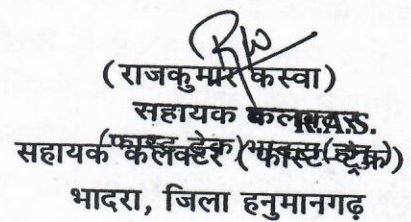 (राजकुमार कस्वा)
सहायक कलक्टर R.A.S.
(फास्ट ट्रेक) भादरा (हनु.)
सहायक कलेक्टर (फास्ट ट्रैक)
भादरा, जिला हनुमानगढ़